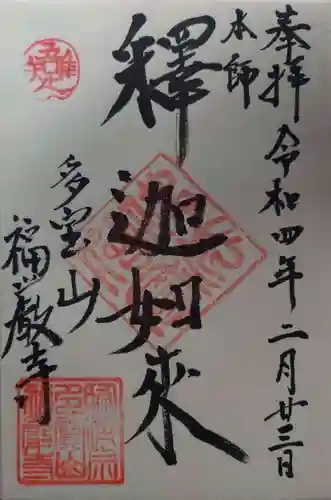 奉拝 令和四年二月廿三日
本師
釋迦如来
多宝山
福嚴寺
吾唯足知